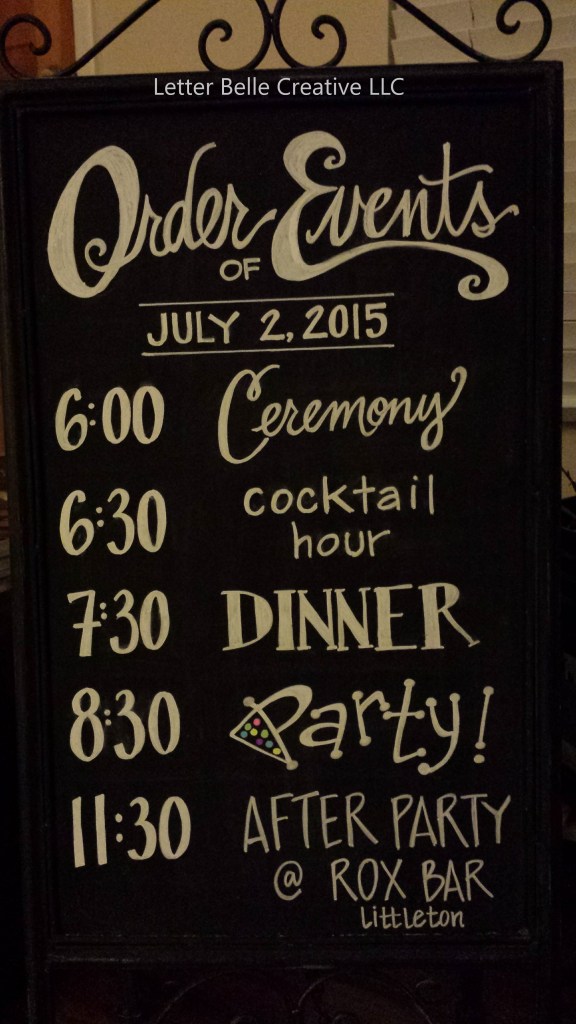 Letter Belle Creative LLC
Order of Events
JULY 2, 2015
6:00 Ceremony
6:30 cocktail
hour
7:30 DINNER
8:30 Party!
11:30 AFTER PARTY
@ ROX BAR
Littleton